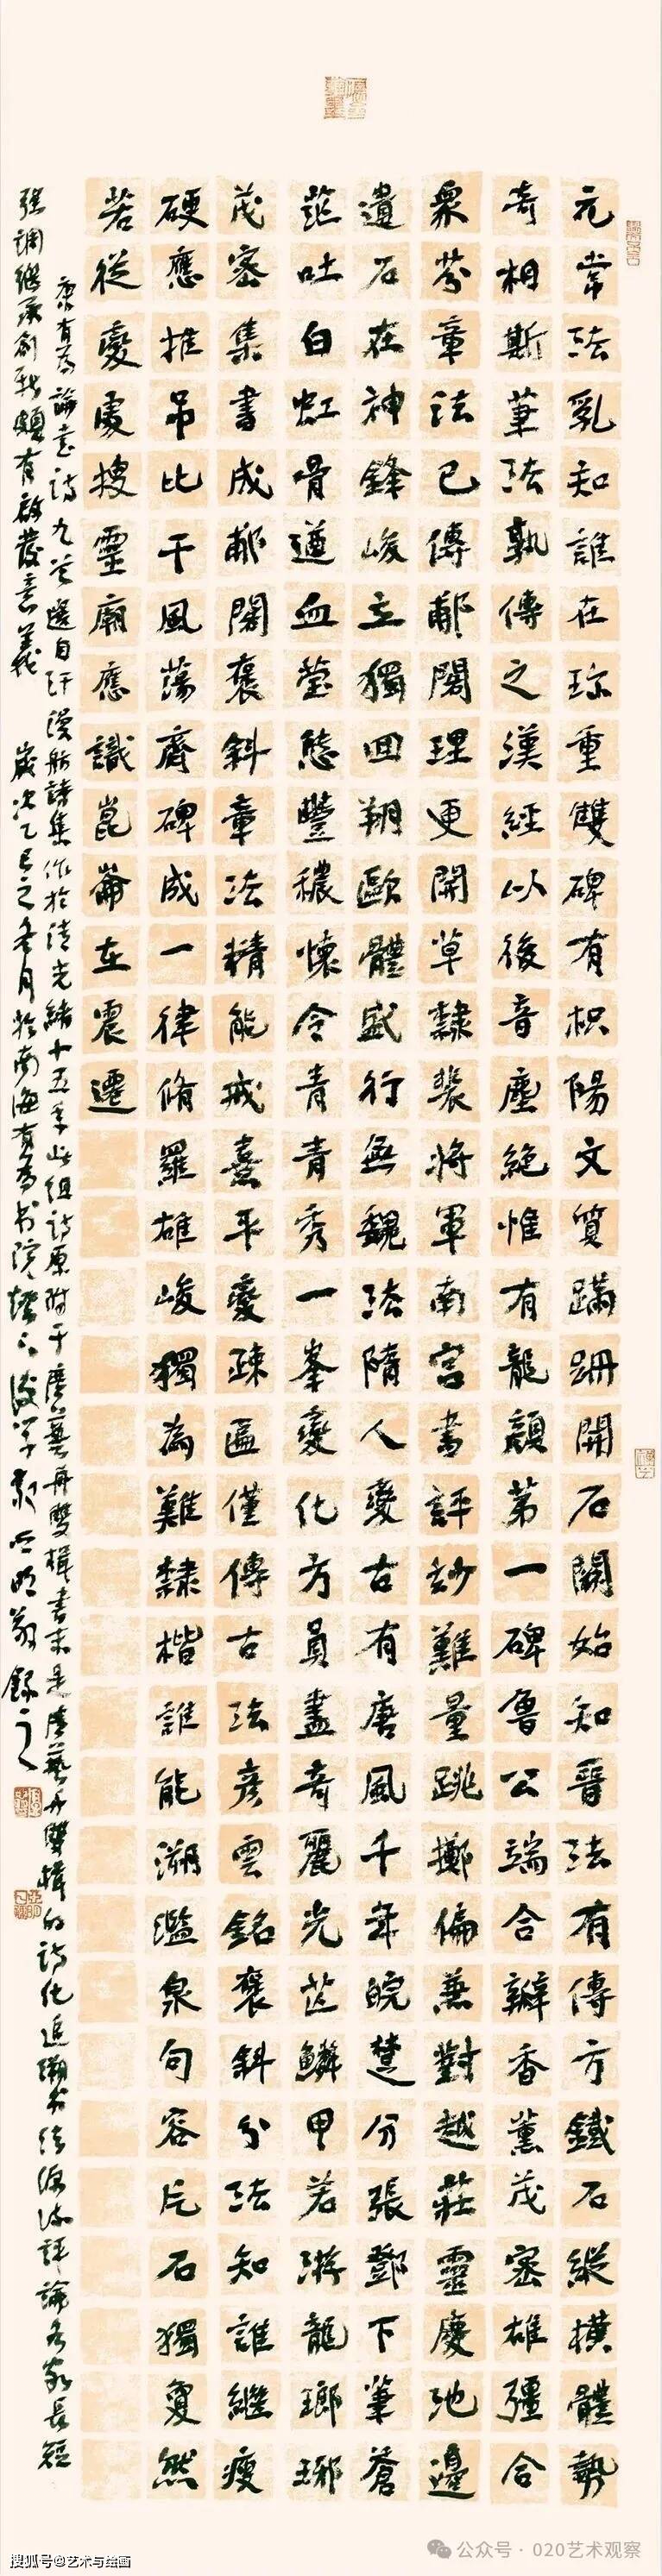 元常法乳知誰在珎重雙碑有枳陽文質蹣跚開石闕始知晉法有傳方鐵石縱橫體勢
奇相斯筆法孰傳之漢經以後音塵絶惟有龍顏第一碑魯公端合瓣香薰茂密雄彊合
衆芬章法已傳郙閣理更開草隸裴將軍南宮書評玅難量跳擲偏兼對越莊靈慶池邊
遺石在神鋒峻立獨回翔歐體盛行無魏法隋人變古有唐風千年皖楚分張鄧下筆蒼
茫吐白虹骨遒血瑩態豐穠懷令青青秀一峯變化方員盡奇麗光芒鱗甲若游龍瑯琊
茂密集書成郙閣褒斜章法精能戒熹平變疎匾僅傳古法彥雲銘褒斜分法知誰繼瘦
硬應推吊比干風蕩齊碑成一律脩羅雄峻獨為難隸楷誰能溯濫泉句容片石獨夐然
若從變處搜靈廟應識崑崙在震遷
康有為論書詩九首選自汗漫舫詩集作於清光緒十五年此組詩原附于廣藝舟雙楫書末是廣藝舟雙楫的詩化追溯书法源流評論各家長短
强調繼承創新頗有啟發意義 歲次乙巳之冬月於南海有為书院 錄之
搜狐号@艺术与绘画
公众号·020艺术观察